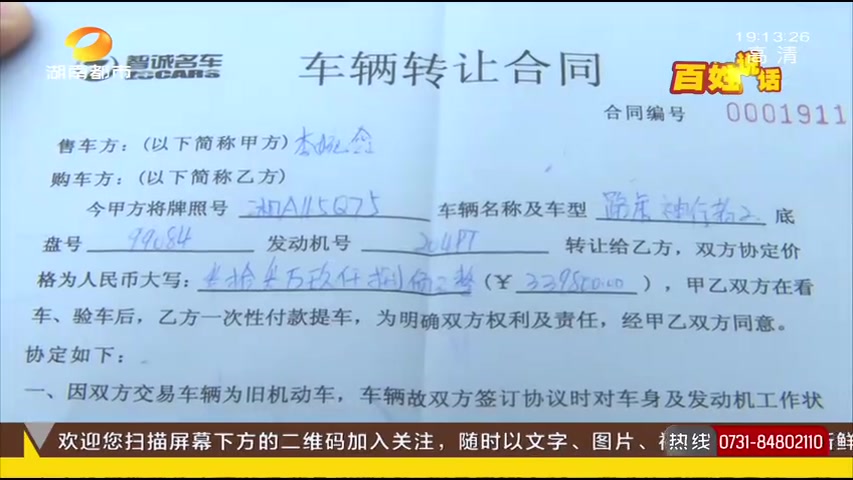 19:13:26
高清
湖南都市
智诚名车
CARS
车辆转让合同
百姓说话
合同编号 0001911
售车方：(以下简称甲方)
购车方：(以下简称乙方)
今甲方将牌照号 A115Q75 车辆名称及车型 路虎神行者2 底
盘号 99084 发动机号 204PT 转让给乙方，双方协定价
格为人民币大写： (￥ 339800.00 )，甲乙双方在看
车、验车后，乙方一次性付款提车，为明确双方权利及责任，经甲乙双方同意。
协定如下：
一、因双方交易车辆为旧机动车，车辆故双方签订协议时对车身及发动机工作状
欢迎您扫描屏幕下方的二维码加入关注，随时以文字、图片、 热线 0731-84802110 新鲜